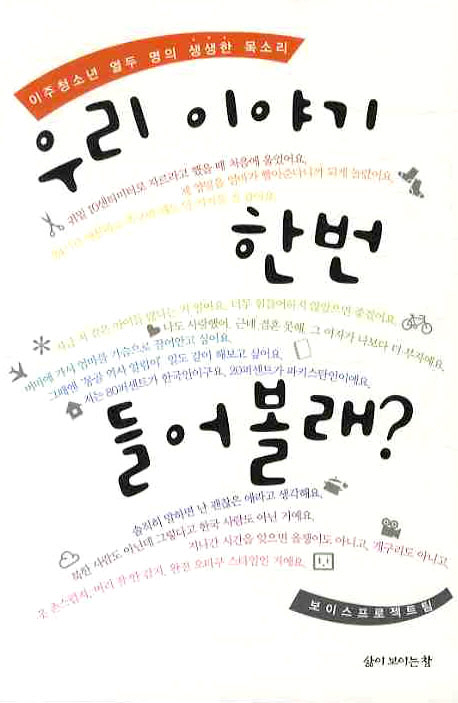 이주청소년 열두 명의 생생한 목소리
우리 이야기
귀밑 10센티미터로 자르라고 했을 때 처음에 울었어요.
제 영혼을 엄마가 팔아준다니까 되게 놀랐어요.
한번
지금 저 같은 아이들 많다는 거 알아요. 너무 힘들어하지 않았으면 좋겠어요.
나도 사랑했어, 근데 결혼 못해. 그 여자가 나보다 더 부자예요.
버마에 가서 엄마를 가슴으로 끌어안고 싶어요.
그때엔 '몽골 역사 알림이' 일도 같이 해보고 싶어요.
저는 80퍼센트가 한국인이구요, 20퍼센트가 파키스탄인이에요.
들어볼래?
솔직히 말하면 난 괜찮은 애라고 생각해요.
북한 사람도 아닌데 그렇다고 한국 사람도 아닌 거예요.
지나간 시간을 잊으면 올챙이도 아니고, 개구리도 아니고.
옷 촌스럽지, 머리 잘 안 감지, 완전 오타쿠 스타일인 거예요.
보이스프로젝트팀
삶이 보이는 창